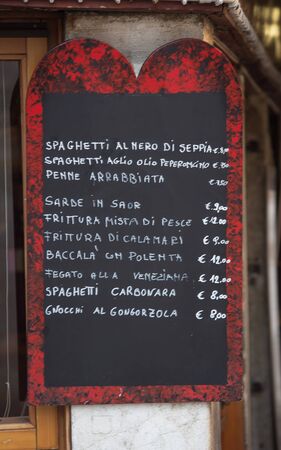 SPAGHETTI AL NERO DI SEPPIA €
SPAGHETTI AGLIO OLIO PEPERONCINO €
PENNE ARRABBIATA €
SARDE IN SAOR €
FRITTURA MISTA DI PESCE € 12.00
FRITTURA DI CALAMARI €
BACCALÀ CON POLENTA € 12,00
FEGATO ALLA VENEZIANA € 12,00
SPAGHETTI CARBONARA € 8,00
GNOCCHI AL GONGORZOLA € 8,00